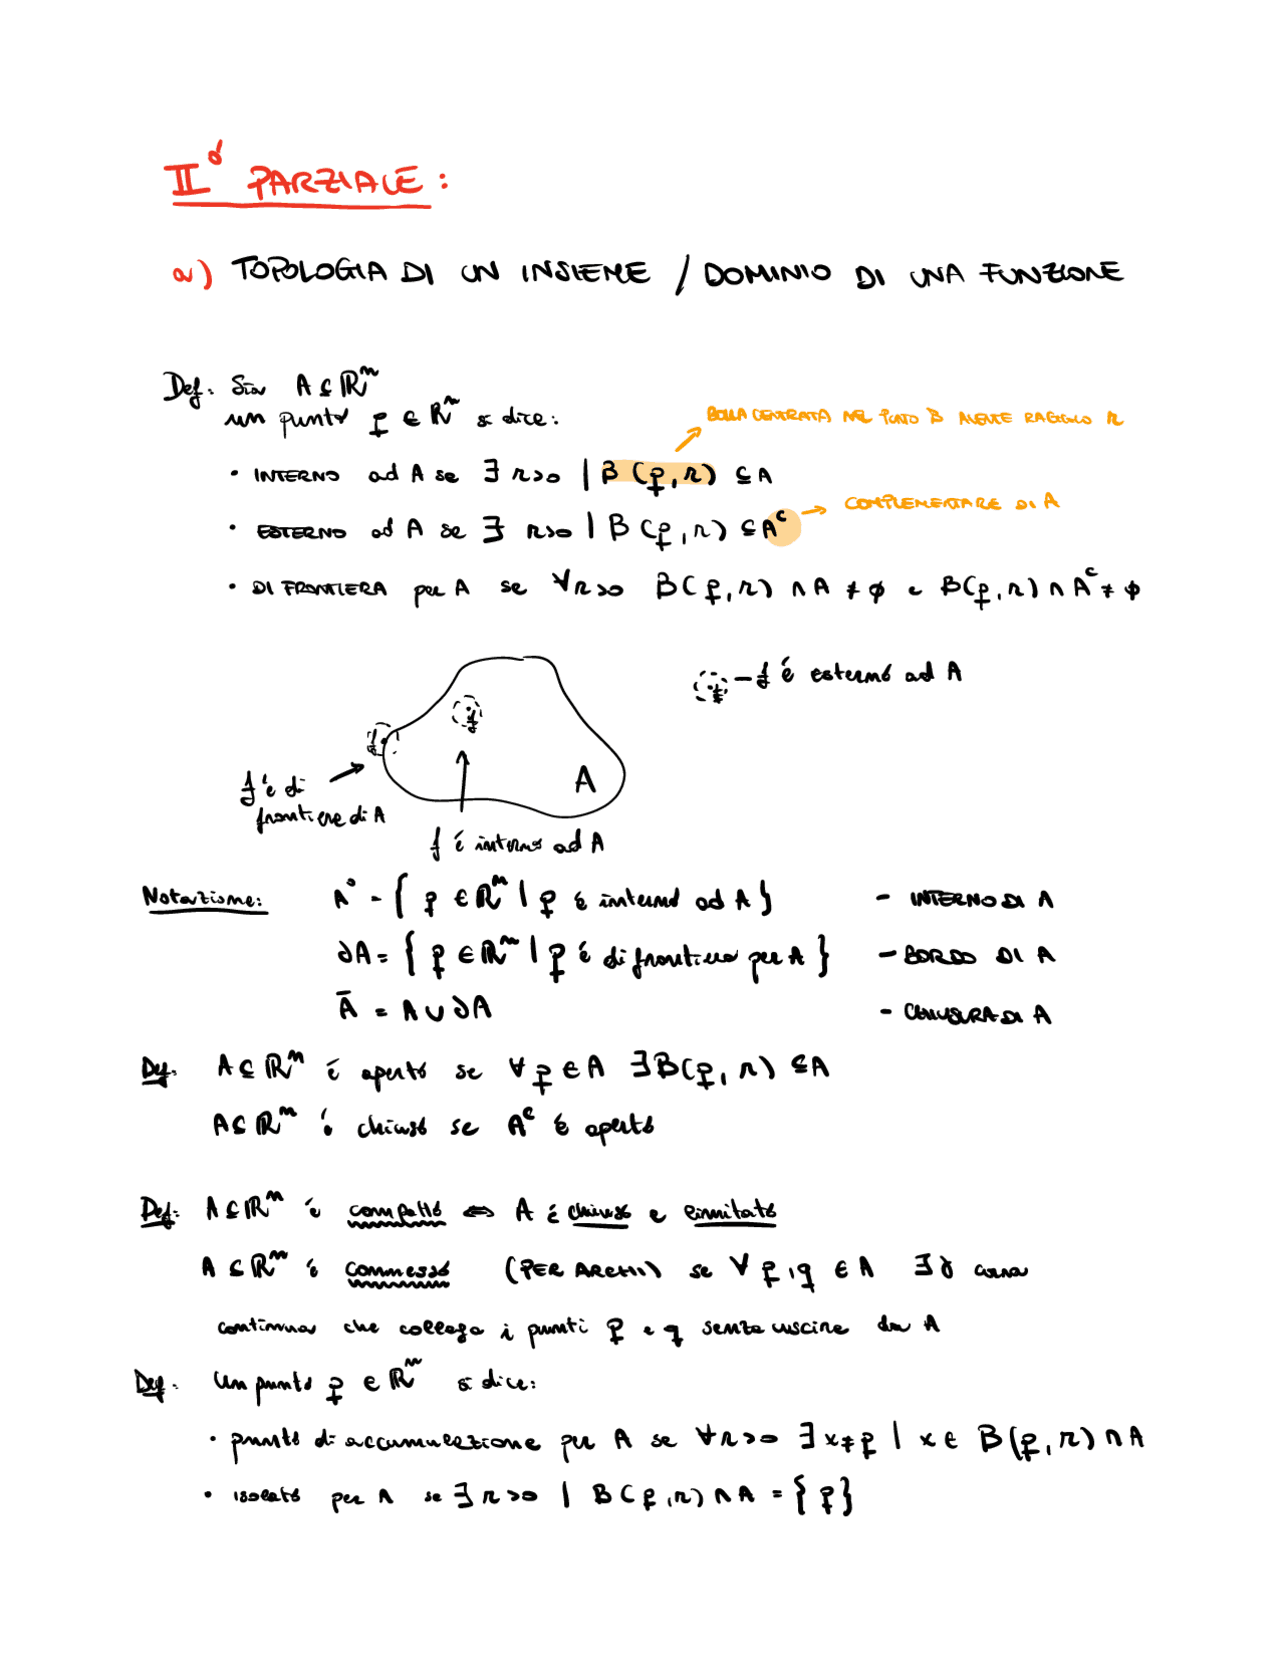 IIº PARZIALE:
a) TOPOLOGIA DI UN INSIEME / DOMINIO DI UNA FUNZIONE
Def: Sia A ⊆ ℝⁿ
un punto p ∈ ℝⁿ si dice:
BOLLA CENTRATA NEL PUNTO P AVENTE RAGGIO R
• INTERNO ad A se ∃ r>0 | B(p,r) ⊆ A
COMPLEMENTARE DI A
• ESTERNO ad A se ∃ r>0 | B(p,r) ⊆ Aᶜ
• DI FRONTIERA per A se ∀r>0 B(p,r) ∩ A ≠ ∅ e B(p,r) ∩ Aᶜ ≠ ∅
p – p é esterno ad A
p
p
A
p é di
frontiera di A
p é interno ad A
Notazione: A° = { p ∈ ℝⁿ | p é interno ad A } – INTERNO DI A
∂A = { p ∈ ℝⁿ | p é di frontiera per A } – BORDO DI A
Ā = A ∪ ∂A – CHIUSURA DI A
Def: A ⊆ ℝⁿ é aperto se ∀ p ∈ A ∃ B(p,r) ⊆ A
A ⊆ ℝⁿ é chiuso se Aᶜ é aperto
Def: A ⊆ ℝⁿ é compatto ⇔ A é chiuso e limitato
A ⊆ ℝⁿ é connesso (PER ARCHI) se ∀ p,q ∈ A ∃ γ curva
continua che collega i punti p e q senza uscire da A
Def: Un punto p ∈ ℝⁿ si dice:
• punto di accumulazione per A se ∀r>0 ∃ x≠p | x ∈ B(p,r) ∩ A
• isolato per A se ∃ r>0 | B(p,r) ∩ A = {p}